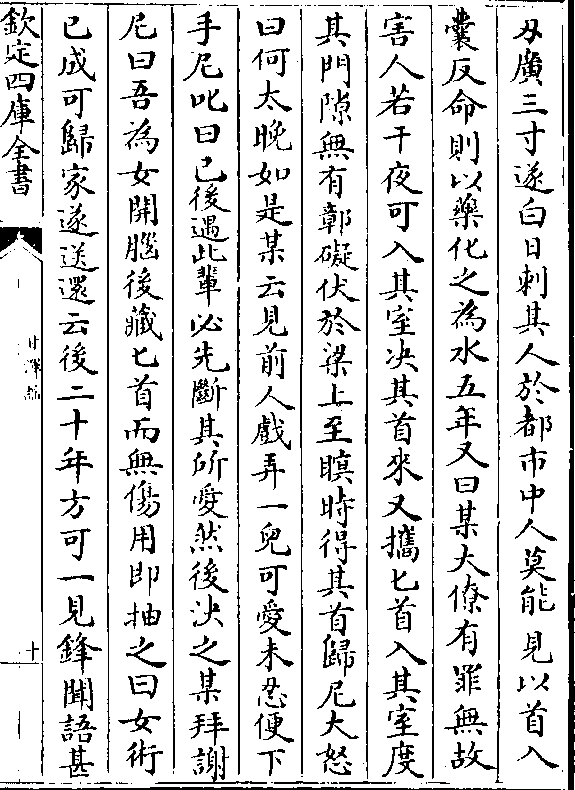 刄廣三寸遂白日刺其人於都市中人莫能見以首入
囊反命則以藥化之為水五年又曰某大僚有罪無故
害人若干夜可入其室决其首來又攜匕首入其室度
其門隙無有鄣礙伏於梁上至瞑時得其首歸尼大怒
曰何太晚如是某云見前人戲弄一兒可愛未忍便下
手尼叱曰已後遇此輩必先斷其所愛然後決之某拜謝
尼曰吾為女開腦後藏匕首而無傷用即抽之曰女術
已成可歸家遂送還云後二十年方可一見鋒聞語甚
欽定四庫全書
甘澤謡
十